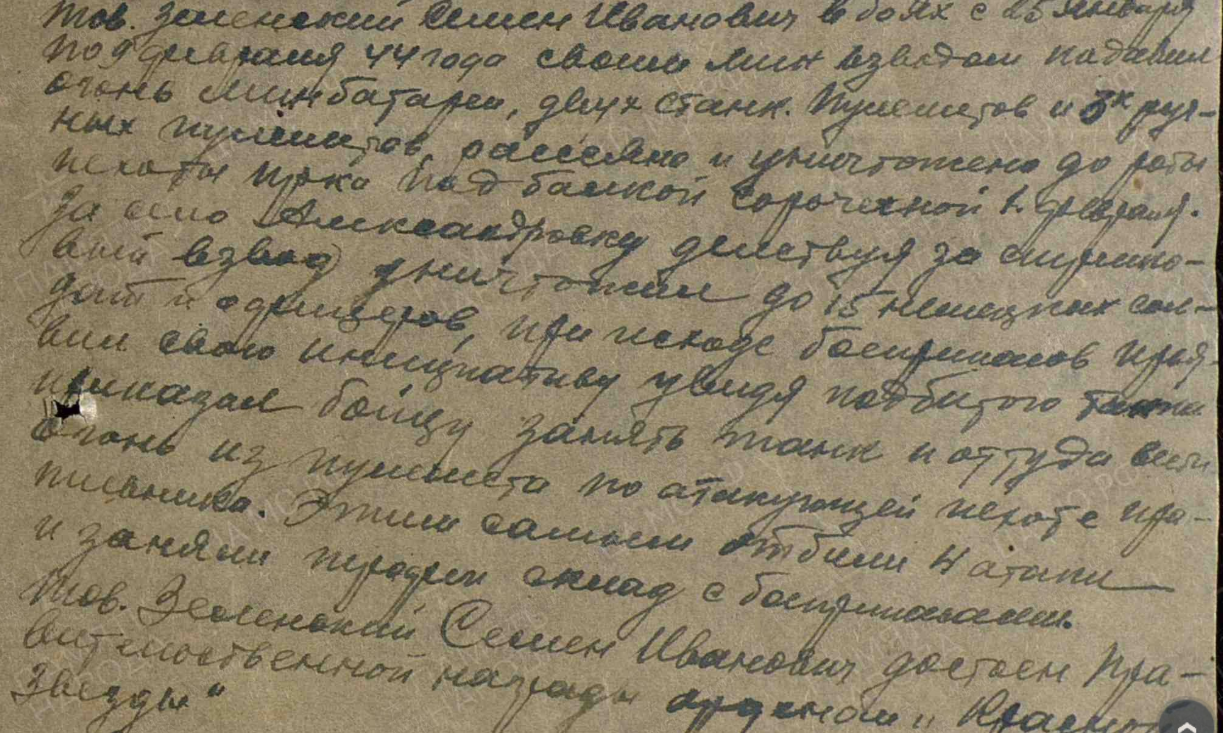 тов. Зеленский Семен Иванович в боях с 25 января
по 9 февраля 44 года своим мин взводом подавил
огонь минбатареи, двух станк. пулеметов и 3х руч-
ных пулеметов, рассеяно и уничтожено до роты
пехоты пр-ка под балкой Сороченной 1. февраля.
За село Александровку действуя за
взвод уничтожил до 15 немецких сол-
дат и офицеров, при исходе боеприпасов проя-
вил свою инициативу увидя подбитого танка
приказал бойцу занять танк и оттуда вести
огонь из пулемета по атакующей пехоте про-
тивника. Этим самым отбили 4 атаки
и заняли склад с боеприпасами.
Тов. Зеленский Семен Иванович достоен пра-
вительственной награды орденом "Красной
Звезды"